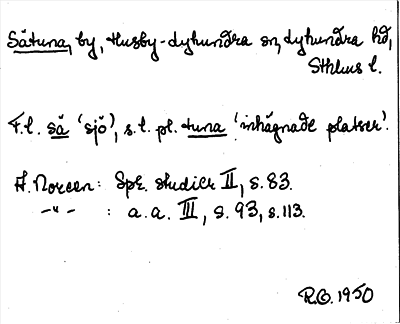 Såtuna, by, Husby-Lyhundra sn, Lyhundra hd,
Sthlms l.
F.l. så 'sjö', s.l. pl. tuna 'inhägnade platser'.
A. Noreen: Spr. studier II, s. 83.
-"- : a.a. III, s. 93, s. 113.
R.O. 1950